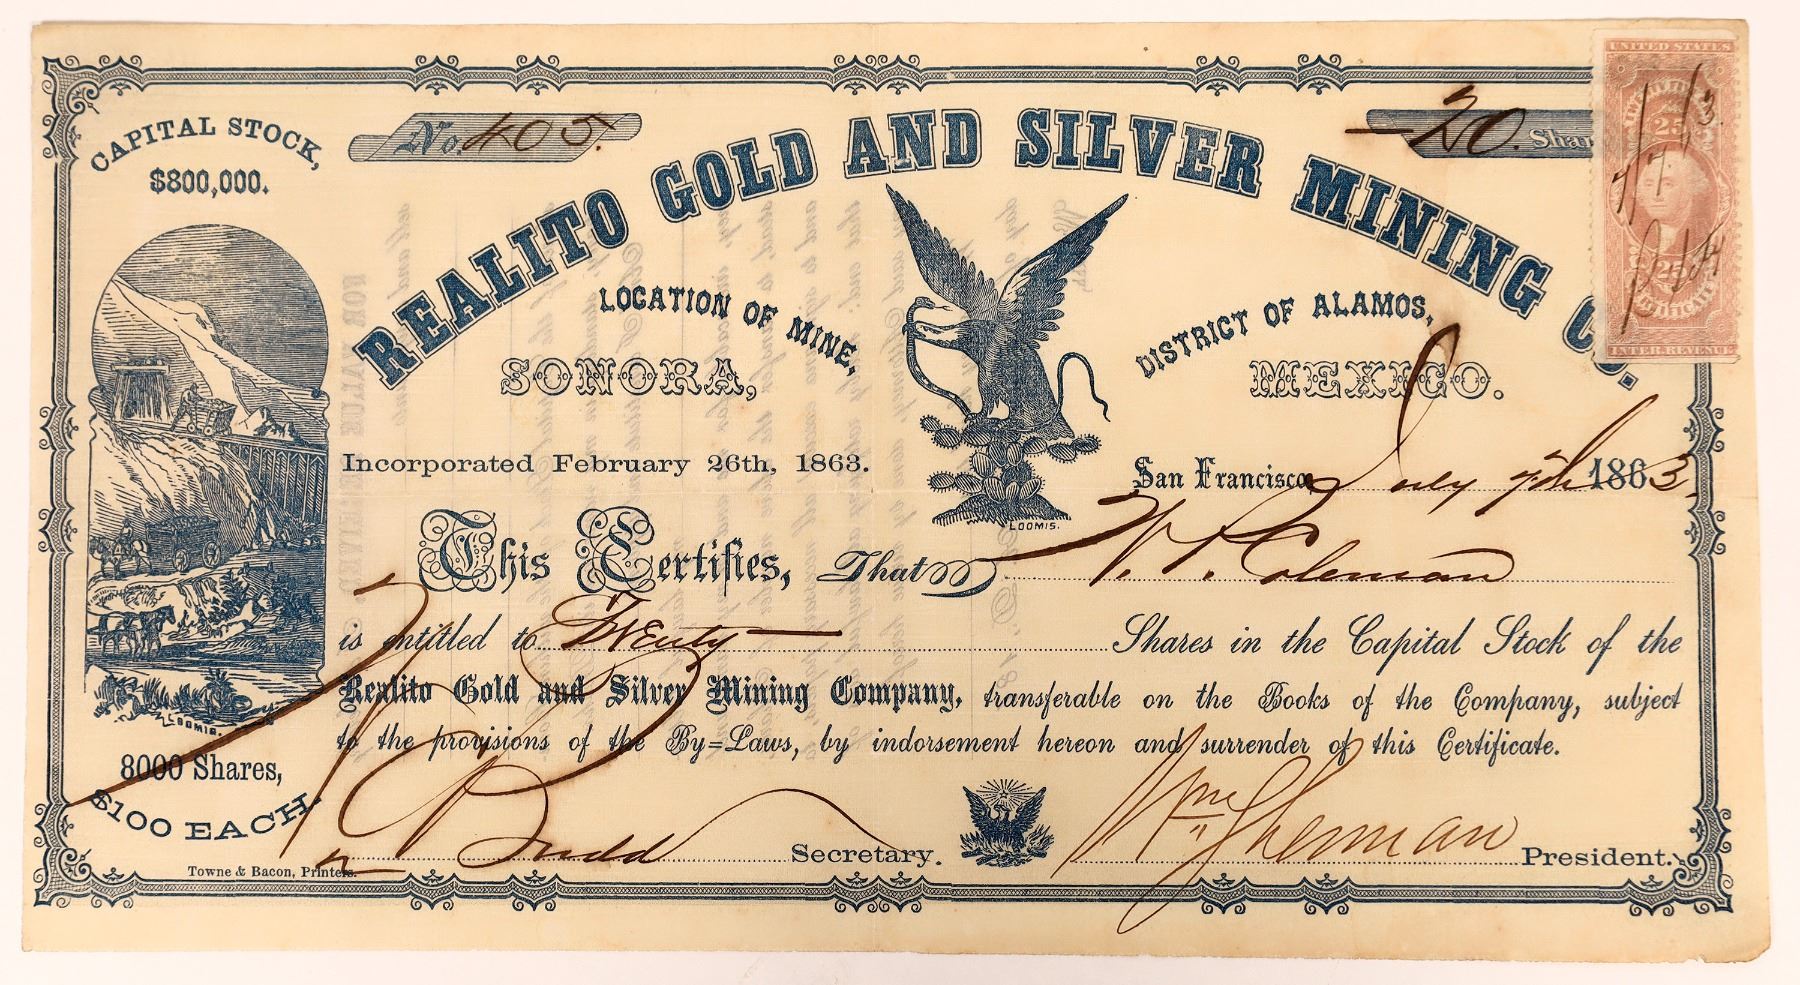 CAPITAL STOCK,
$800,000.
No. 405.
20. Shar
UNITED STATES
25
25
CERTIFICATE
INTER. REVENUE
REALITO GOLD AND SILVER MINING CO.
LOCATION OF MINE,
DISTRICT OF ALAMOS,
SONORA,
MEXICO.
Incorporated February 26th, 1863.
San Francisco July 7th 1863.
LOOMIS.
This Certifies, That W. T. Coleman
is entitled to Twenty Shares in the Capital Stock of the
Realito Gold and Silver Mining Company, transferable on the Books of the Company, subject
to the provisions of the By=Laws, by indorsement hereon and surrender of this Certificate.
LOOMIS.
8000 Shares,
$100 EACH.
Budd Secretary.
Wm Sherman President.
Towne & Bacon, Printers.